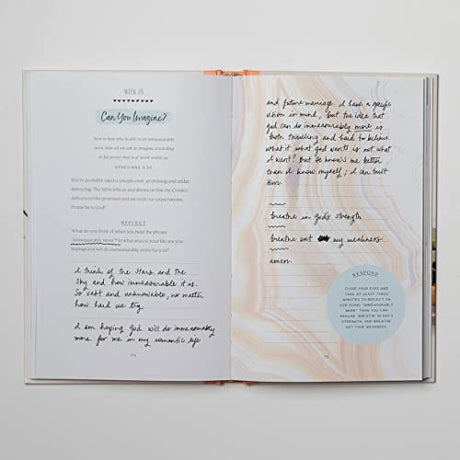 WEEK 26
Can You Imagine?
Now to him who is able to do immeasurably
more than all we ask or imagine, according
to his power that is at work within us.
EPHESIANS 3:20
You're probably used to people over-promising and under-
delivering. The Bible tells us and shows us that the Creator
delivers on His promises and exceeds our expectations.
Praise be to God!
REFLECT
What do you think of when you hear the phrase
"immeasurably more"? In what area of your life are you
hoping God will do immeasurably more?
I think of the stars and the
sky and how immeasurable it is.
So vast and unknowable, no matter
how hard we try.
I am hoping God will do immeasurably
more for me in my romantic life
and future marriage. I have a specific
whom in mind, but the idea that
God can do immeasurably more is
both thrilling and hard to believe.
What if what God wants is not what
I want? But he knows me better
than I know myself; I can trust
Him.
breathe in God's strength
breathe out my weakness
amen.
RESPOND
CLOSE YOUR EYES AND
TAKE AT LEAST THREE
MINUTES TO REFLECT ON
GOD DOING "IMMEASURABLY
MORE" THAN YOU CAN
IMAGINE. BREATHE IN GOD'S
STRENGTH, AND BREATHE
OUT YOUR WEAKNESS.